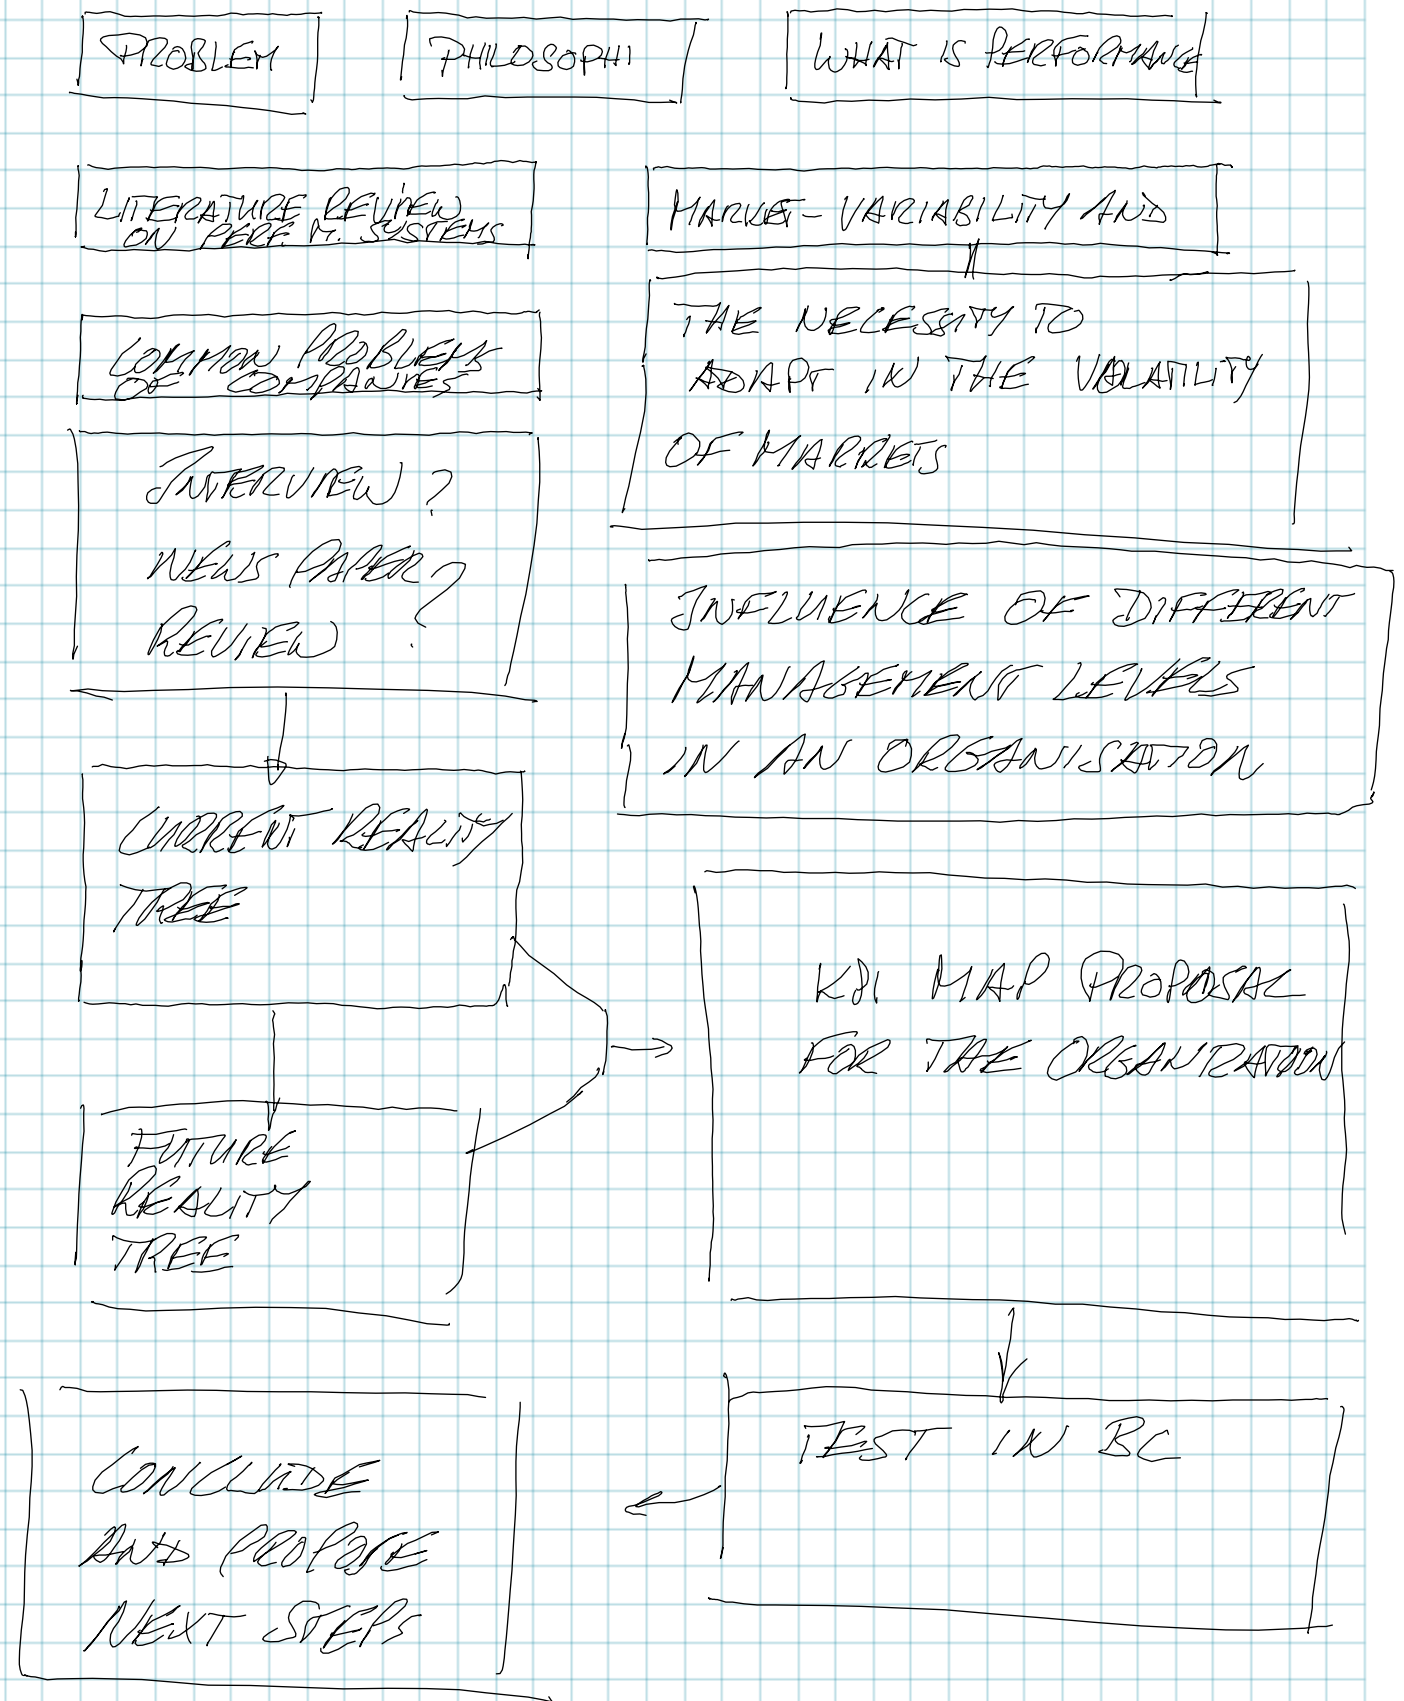 PROBLEM
PHILOSOPHI
WHAT IS PERFORMANCE
LITERATURE REVIEW
ON PERF. M. SYSTEMS
MARKET-VARIABILITY AND
COMMON PROBLEMS
OF COMPANIES
THE NECESSITY TO
ADAPT IN THE VOLATILITY
OF MARKETS
INTERVIEW?
NEWS PAPER?
REVIEW ?
INFLUENCE OF DIFFERENT
MANAGEMENT LEVELS
IN AN ORGANISATION
CURRENT REALITY
TREE
KPI MAP PROPOSAL
FOR THE ORGANIZATION
FUTURE
REALITY
TREE
TEST IN BC
CONCLUDE
AND PROPOSE
NEXT STEPS